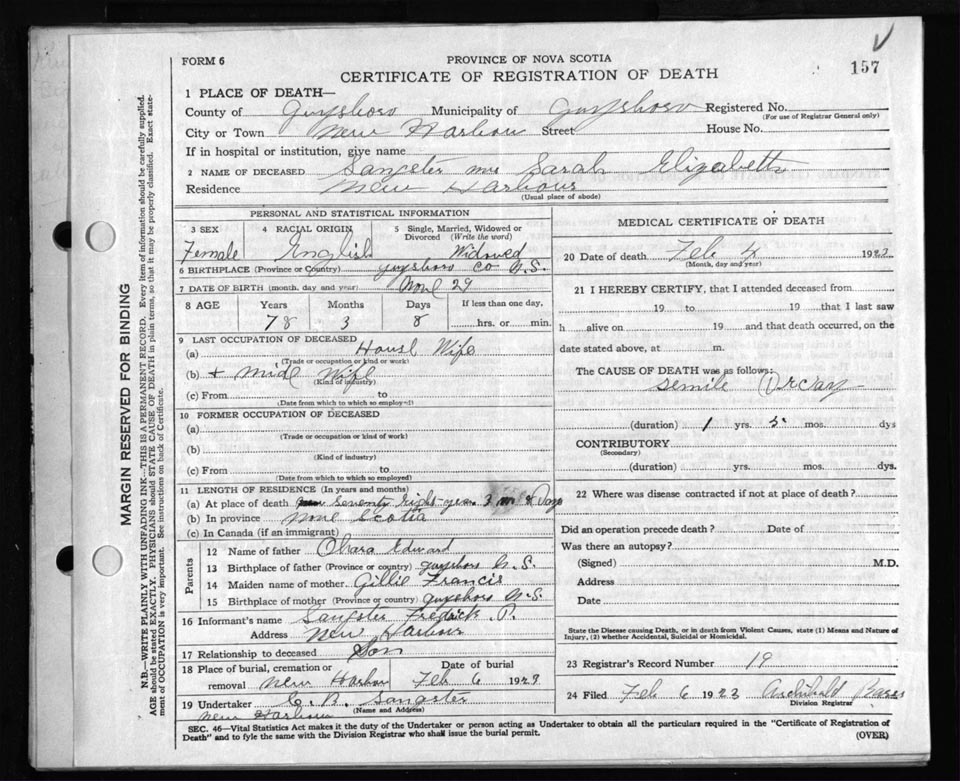 157
FORM 6
PROVINCE OF NOVA SCOTIA
CERTIFICATE OF REGISTRATION OF DEATH
1 PLACE OF DEATH—
County of Guysboro Municipality of Guysboro Registered No.
(For use of Registrar General only)
City or Town New Harbour Street House No.
If in hospital or institution, give name
2 NAME OF DECEASED Sangster Mrs Sarah Elizabeth
Residence New Harbour
(Usual place of abode)
PERSONAL AND STATISTICAL INFORMATION
3 SEX 4 RACIAL ORIGIN 5 Single, Married, Widowed or Divorced (Write the word)
Female English Widowed
6 BIRTHPLACE (Province or Country) Guysboro Co N.S.
7 DATE OF BIRTH (month, day and year) 29
8 AGE Years Months Days If less than one day,
78 3 8 hrs. or min.
9 LAST OCCUPATION OF DECEASED
(a) House Wife
(Trade or occupation or kind of work)
(b) + Mid Wife
(Kind of industry)
(c) From to
(Date from which to which so employed)
10 FORMER OCCUPATION OF DECEASED
(a)
(Trade or occupation or kind of work)
(b)
(Kind of industry)
(c) From to
(Date from which to which so employed)
11 LENGTH OF RESIDENCE (In years and months)
(a) At place of death seventy eight years 3 m 8 Days
(b) In province Nova Scotia
(c) In Canada (if an immigrant)
Parents
12 Name of father Ohara Edward
13 Birthplace of father (Province or country) Guysboro N.S.
14 Maiden name of mother Gillie Francis
15 Birthplace of mother (Province or country) Guysboro N.S.
16 Informant's name Sangster Fredrick P.
Address New Harbour
17 Relationship to deceased Son
18 Place of burial, cremation or removal New Harbour Date of burial Feb 6 192
19 Undertaker C. B. Sangster
(Name and Address)
New Harbour
MEDICAL CERTIFICATE OF DEATH
20 Date of death Feb 4 1923
(Month, day and year)
21 I HEREBY CERTIFY, that I attended deceased from
19 to 19 that I last saw
h alive on 19 and that death occurred, on the
date stated above, at m.
The CAUSE OF DEATH was as follows:
Senile Decay
(duration) 1 yrs. mos. dys
CONTRIBUTORY
(Secondary)
(duration) yrs. mos. dys.
22 Where was disease contracted if not at place of death?
Did an operation precede death? Date of
Was there an autopsy?
(Signed) M.D.
Address
Date
State the Disease causing Death, or in death from Violent Causes, state (1) Means and Nature of
Injury, (2) whether Accidental, Suicidal or Homicidal.
23 Registrar's Record Number 19
24 Filed Feb 6 1923 Archibald
Division Registrar
SEC. 46—Vital Statistics Act makes it the duty of the Undertaker or person acting as Undertaker to obtain all the particulars required in the "Certificate of Registration of
Death" and to fyle the same with the Division Registrar who shall issue the burial permit. (OVER)
MARGIN RESERVED FOR BINDING
N.B.—WRITE PLAINLY WITH UNFADING INK—THIS IS A PERMANENT RECORD. Every item of information should be carefully supplied.
AGE should be stated EXACTLY. PHYSICIANS should STATE CAUSE OF DEATH in plain terms, so that it may be properly classified. Exact state-
ment of OCCUPATION is very important. See instructions on back of Certificate.